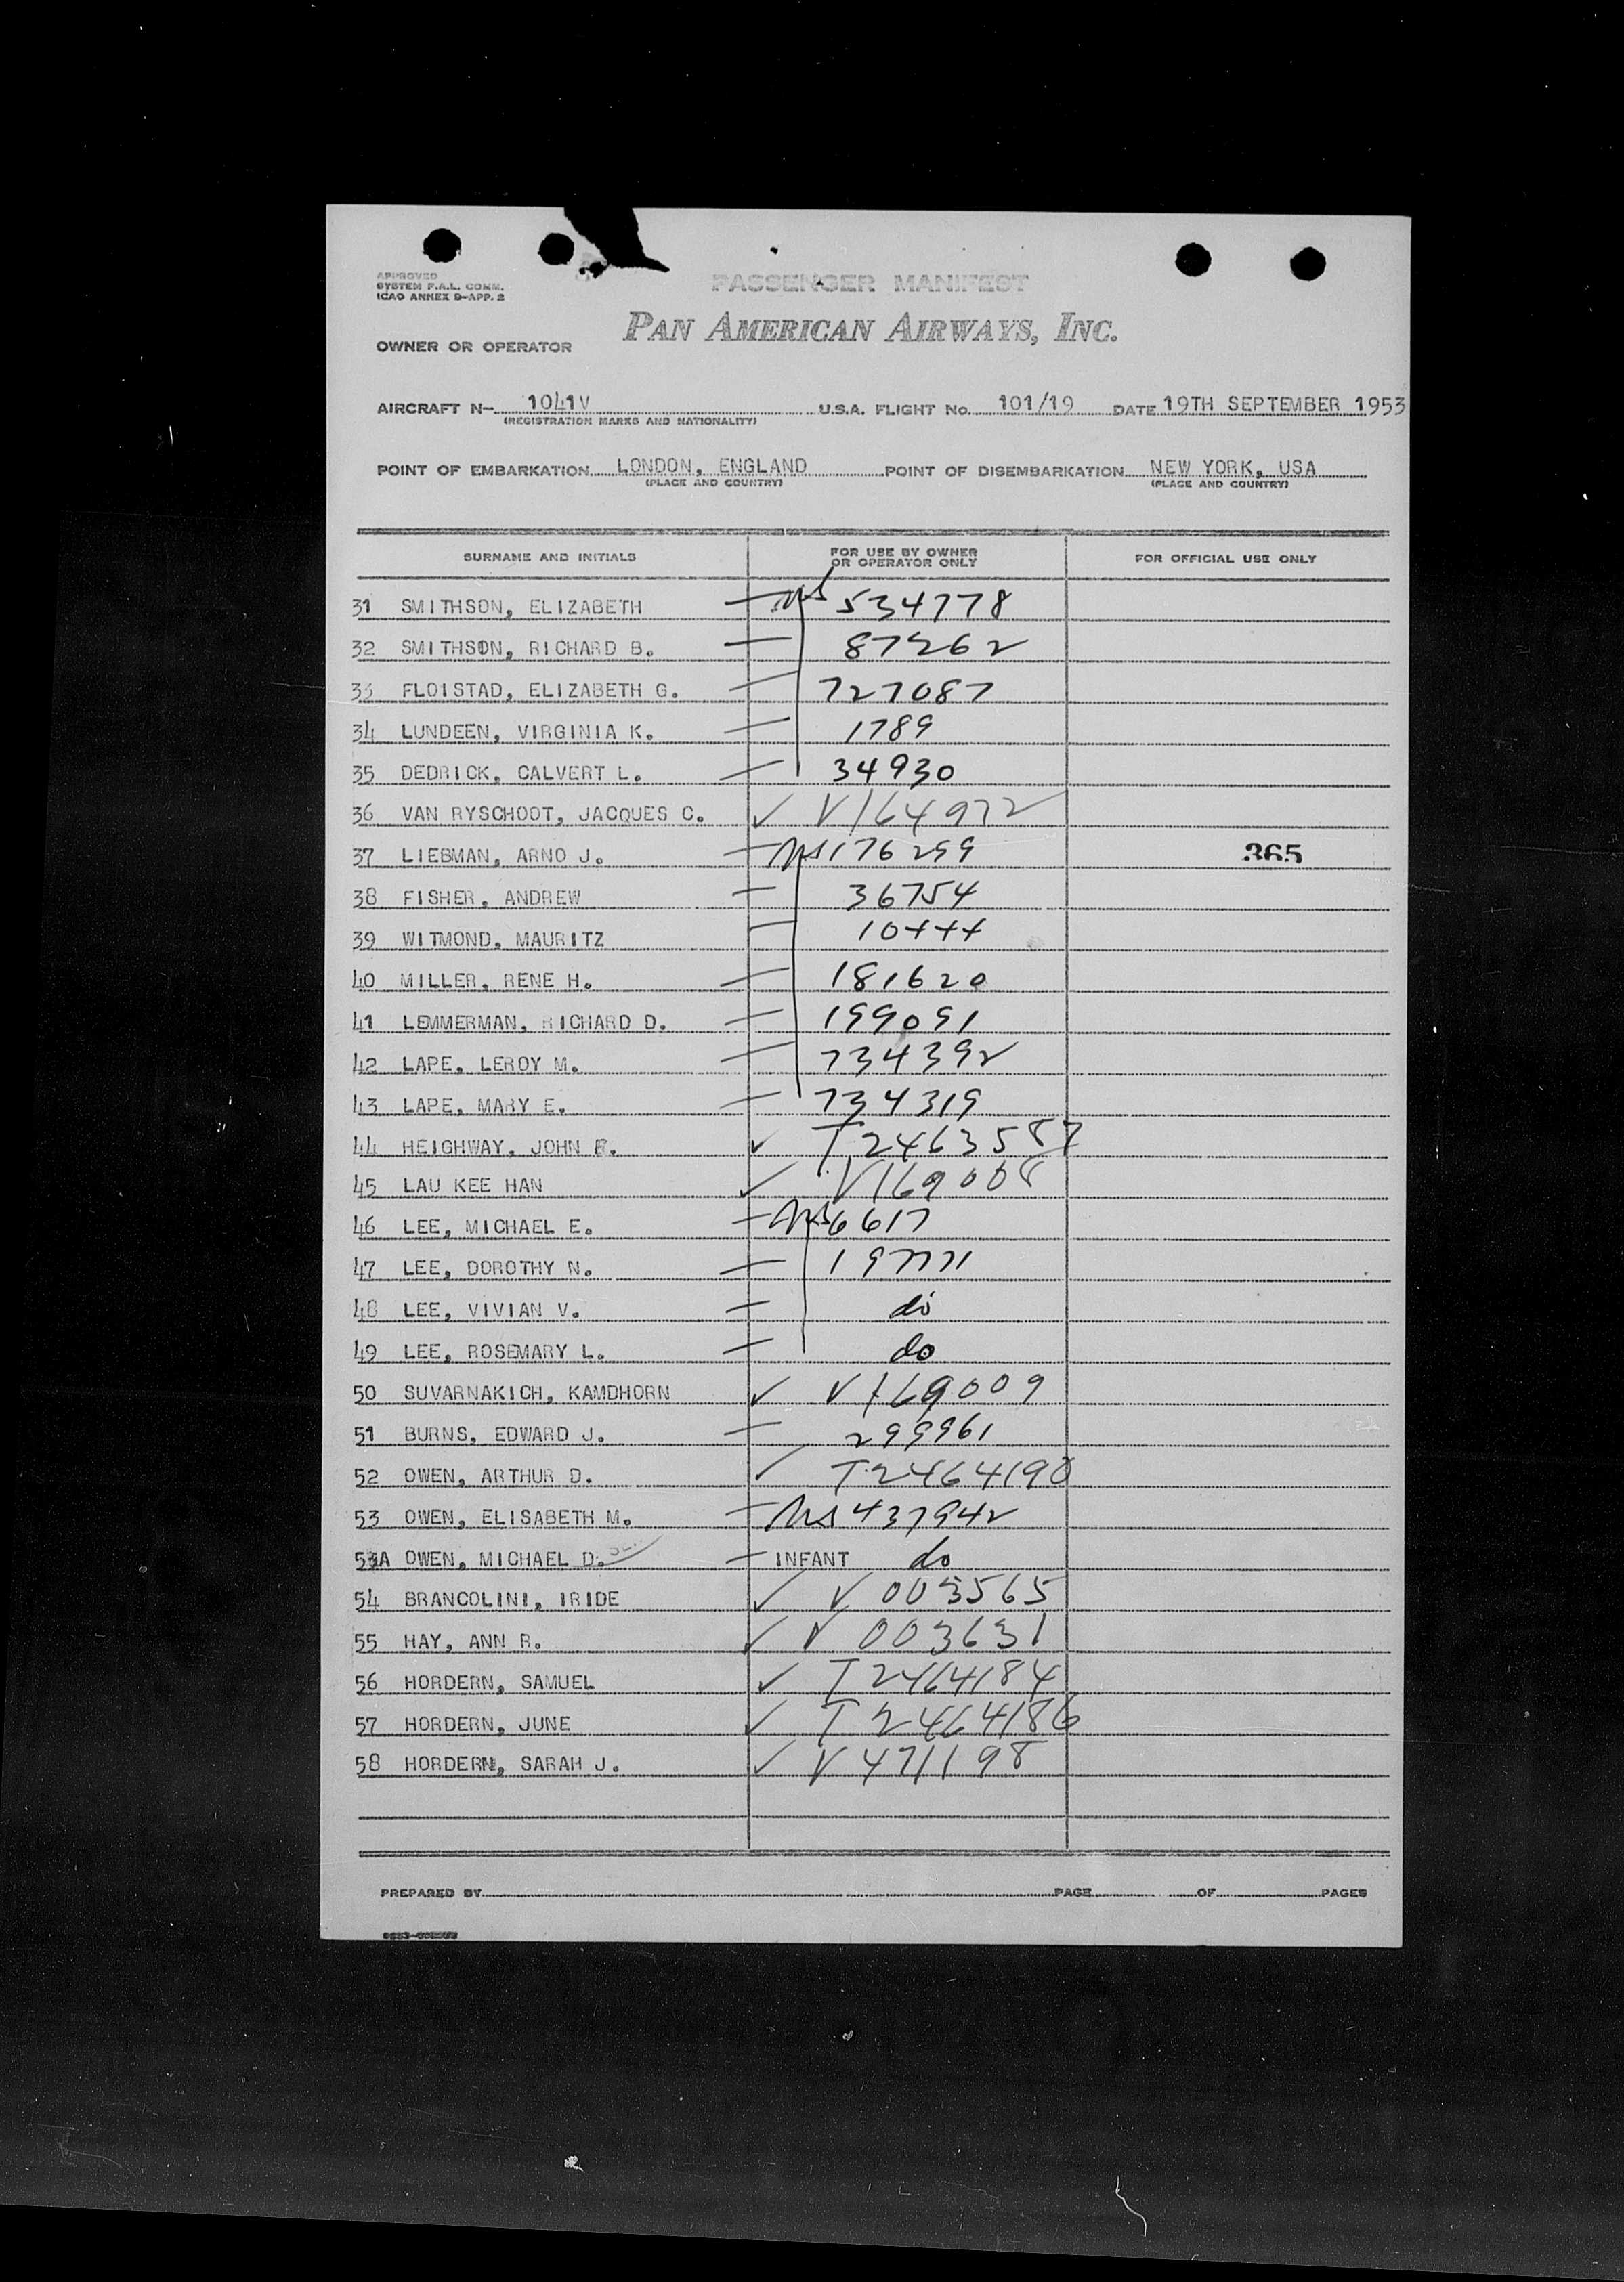 APPROVED
SYSTEM F.A.L. COMM.
ICAO ANNEX 9-APP. 2
PASSENGER MANIFEST
PAN AMERICAN AIRWAYS, INC.
OWNER OR OPERATOR
AIRCRAFT N- 1041V U.S.A. FLIGHT No. 101/19 DATE 19TH SEPTEMBER 1953
(REGISTRATION MARKS AND NATIONALITY)
POINT OF EMBARKATION LONDON, ENGLAND POINT OF DISEMBARKATION NEW YORK, USA
(PLACE AND COUNTRY) (PLACE AND COUNTRY)
SURNAME AND INITIALS FOR USE BY OWNER OR OPERATOR ONLY FOR OFFICIAL USE ONLY
31 SMITHSON, ELIZABETH 534778
32 SMITHSON, RICHARD B. 87262
33 FLOISTAD, ELIZABETH G. 727087
34 LUNDEEN, VIRGINIA K. 1789
35 DEDRICK, CALVERT L. 34930
36 VAN RYSCHOOT, JACQUES C. ✓ V164972
37 LIEBMAN, ARNO J. 176299 365
38 FISHER, ANDREW 36754
39 WITMOND, MAURITZ
40 MILLER, RENE H. 181620
41 LEMMERMAN, RICHARD D. 199091
42 LAPE, LEROY M. 734392
43 LAPE, MARY E. 734319
44 HEIGHWAY, JOHN ✓ T2463587
45 LAU KEE HAN ✓ V169008
46 LEE, MICHAEL E. 6617
47 LEE, DOROTHY N.
48 LEE, VIVIAN V. do
49 LEE, ROSEMARY L. do
50 SUVARNAKICH, KAMDHORN ✓ V169009
51 BURNS, EDWARD J. 299961
52 OWEN, ARTHUR D. ✓ T2464190
53 OWEN, ELISABETH M. 437942
53A OWEN, MICHAEL D. INFANT do
54 BRANCOLINI, IRIDE ✓ V 003565
55 HAY, ANN R. ✓ V 003631
56 HORDERN, SAMUEL ✓ T2464184
57 HORDERN, JUNE ✓ T2464186
58 HORDERN, SARAH J. ✓ V471198
PREPARED BY PAGE OF PAGES